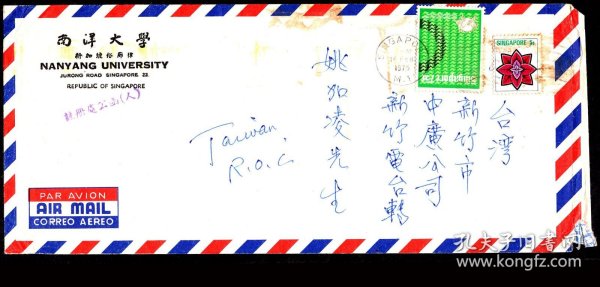 南洋大學
新加坡裕廊律
NANYANG UNIVERSITY
JURONG ROAD SINGAPORE 22.
REPUBLIC OF SINGAPORE
台湾
新竹市
中廣公司
新竹電台轉
姚加凌先生
Taiwan
R.O.C
PAR AVION
AIR MAIL
CORREO AEREO
SINGAPORE
SINGAPORE 5c
孔夫子旧书网
www.kongfz.com